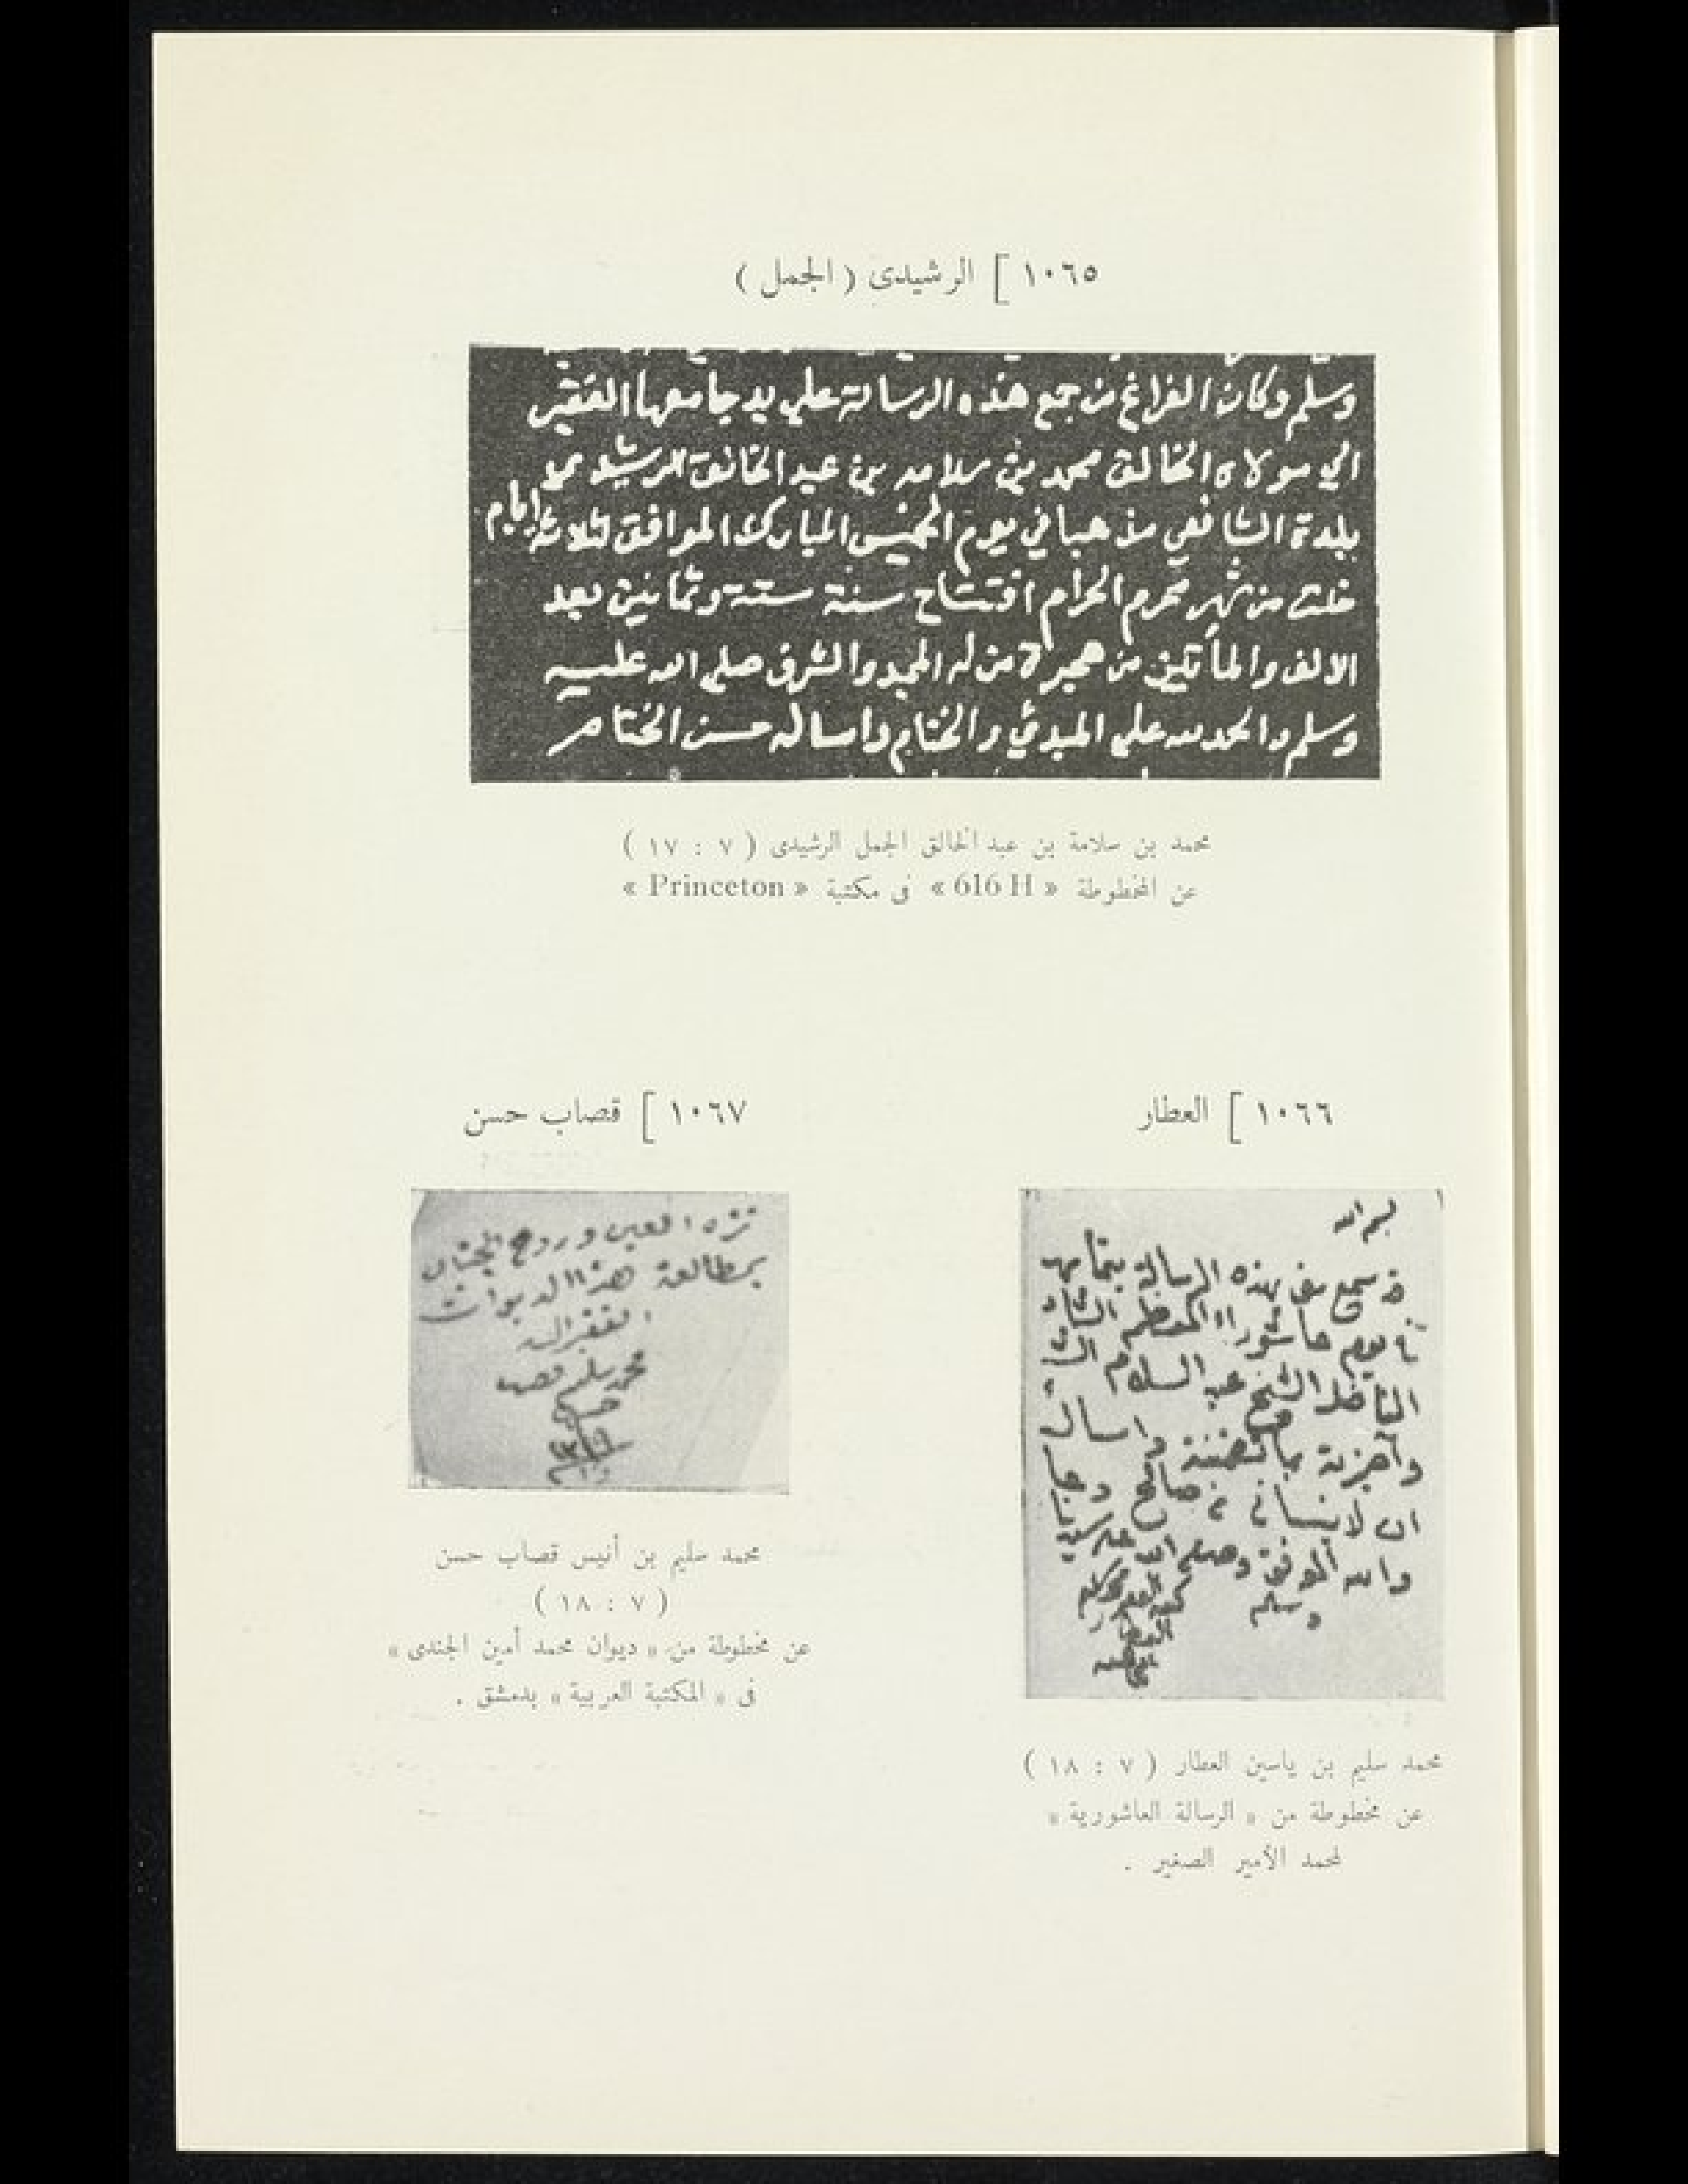 ١٠٦٥ ] الرشيدى ( الجمل )
وسلم وكان الفراغ من جمع هذه الرسالة علي يد جامعها الفقير
الي مولاه الخالق محمد بن سلامه بن عبد الخالق الرشيدي
بلدة الشافعي مذهبا في يوم الخميس المبارك الموافق لثلاثة ايام
خلت من شهر محرم الحرام افتتاح سنة ستة وثمانين بعد
الالف والمأتين من هجرة من له المجد والشرف صلي الله عليه
وسلم والحمد لله علي المبدئ والختام واساله حسن الختام
محمد بن سلامة بن عبد الخالق الجمل الرشيدى ( ٧ : ١٧ )
عن المخطوطة « 616 H » فى مكتبة « Princeton »
١٠٦٦ ] العطار
بسم الله
قد سمع مني هذه الرسالة بتمامها
في يوم عاشوراا المعظم الشاب
الفاضل الشيخ عبد السلام
واجزته بما تضمنته واسال
ان لا ينساني من صالح دعا
والله الموفق وصلى الله على سيدنا
وسلم
العطار
محمد سليم بن ياسين العطار ( ٧ : ١٨ )
عن مخطوطة من « الرسالة العاشورية »
لمحمد الأمير الصغير .
١٠٦٧ ] قصاب حسن
نزه العين وروح الجنان
بمطالعة هذا الديوان
الفقير اليه
محمد سليم قصاب
حسن
محمد سليم بن أنيس قصاب حسن
( ٧ : ١٨ )
عن مخطوطة من « ديوان محمد أمين الجندى »
فى « المكتبة العربية » بدمشق .